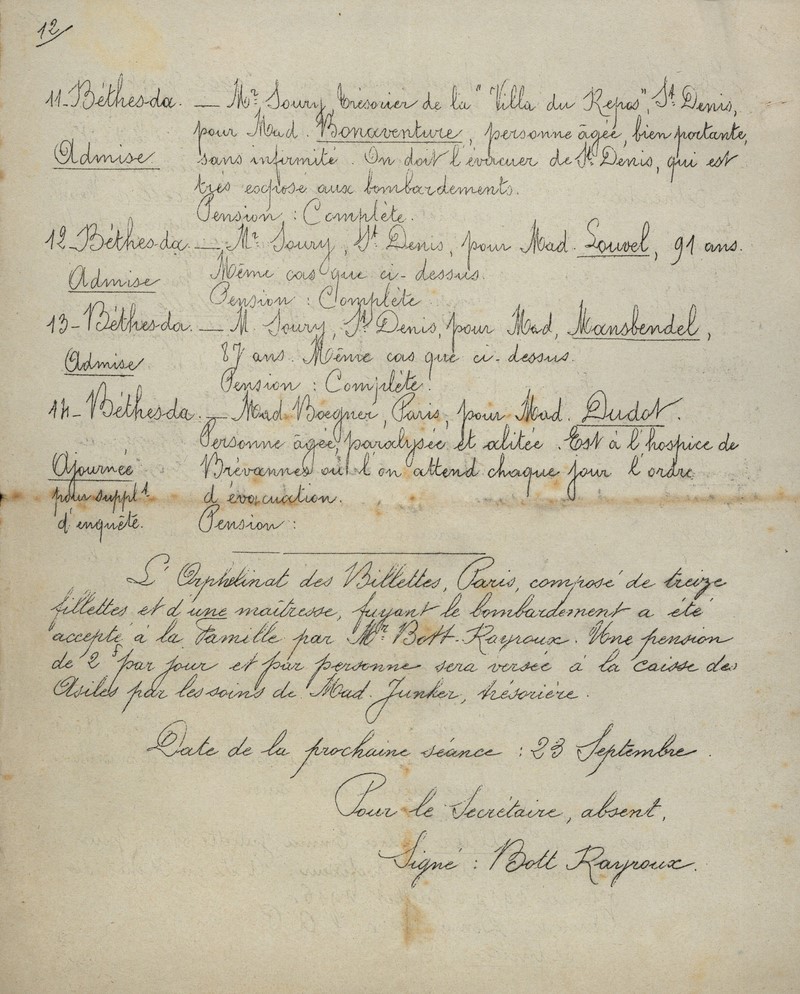 12
11-Béthesda. — Mr. Soury, trésorier de la "Villa du Repos", St Denis,
pour Mad. Bonaventure, personne âgée, bien portante,
Admise sans infirmité. On doit l'évacuer de St Denis, qui est
très exposé aux bombardements.
Pension : Complète.
12-Béthesda. — Mr. Soury, St Denis, pour Mad. Louvel, 91 ans.
Admise Même cas que ci-dessus.
Pension : Complète.
13-Béthesda. — M. Soury, St Denis, pour Mad, Mansbendel,
Admise 87 ans. Même cas que ci-dessus.
Pension : Complète.
14-Béthesda. — Mad. Boegner, Paris, pour Mad. Dudot.
Personne âgée, paralysée et alitée. Est à l'hospice de
Ajournée Brévannes où l'on attend chaque jour l'ordre
pour supplt d'évacuation.
d'enquête. Pension :
L'Orphelinat des Billettes, Paris, composé de treize
fillettes et d'une maîtresse, fuyant le bombardement a été
accepté à la Famille par Mr Bott-Rayroux. Une pension
de 2f par jour et par personne sera versée à la caisse des
Asiles par les soins de Mad. Junker, trésorière.
Date de la prochaine séance : 23 Septembre.
Pour le Secrétaire, absent,
Signé : Bott Rayroux.